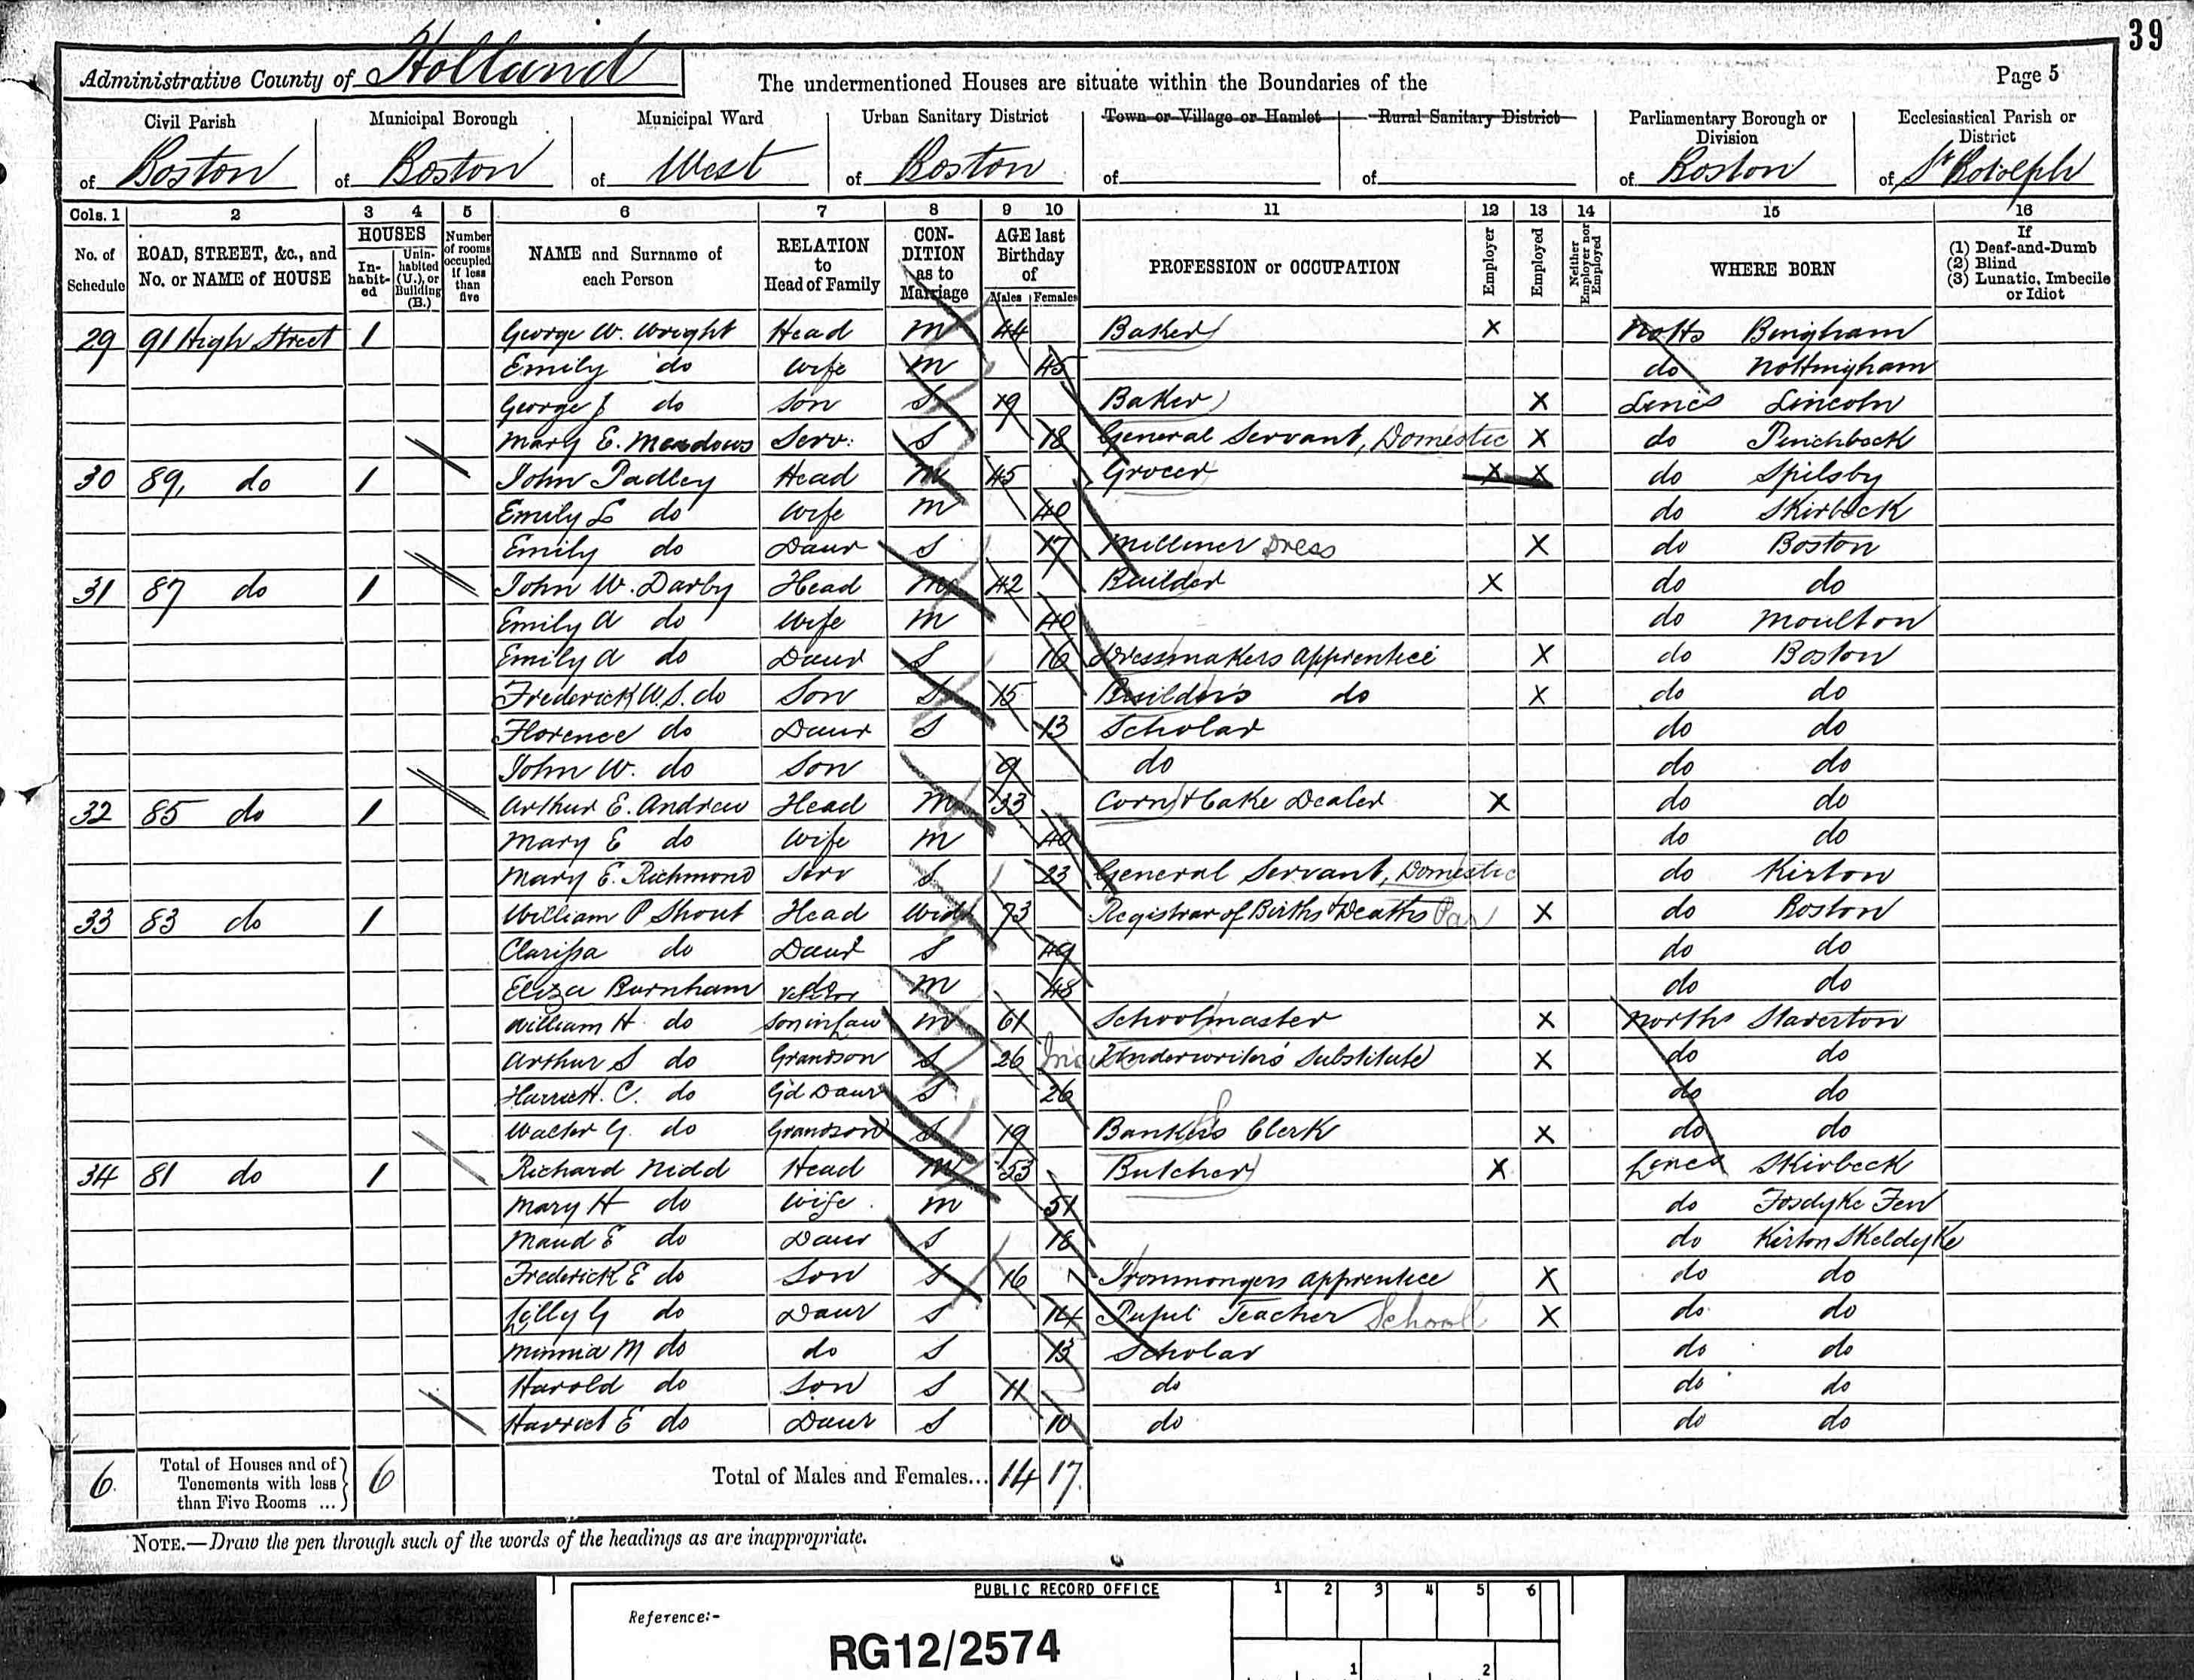 39
Administrative County of Holland
The undermentioned Houses are situate within the Boundaries of the
Page 5
Civil Parish of Boston
Municipal Borough of Boston
Municipal Ward of West
Urban Sanitary District of Boston
Town or Village or Hamlet of
Rural Sanitary District of
Parliamentary Borough or Division of Boston
Ecclesiastical Parish or District of St Botolph
Cols. 1 2 3 4 5 6 7 8 9 10 11 12 13 14 15 16
No. of Schedule
ROAD, STREET, &c., and No. or NAME of HOUSE
HOUSES
In-habit-ed
Unin-habited (U.), or Building (B.)
Number of rooms occupied if less than five
NAME and Surname of each Person
RELATION to Head of Family
CON-DITION as to Marriage
AGE last Birthday of
Males Females
PROFESSION or OCCUPATION
Employer
Employed
Neither Employer nor Employed
WHERE BORN
If (1) Deaf-and-Dumb (2) Blind (3) Lunatic, Imbecile or Idiot
29 91 High Street 1 George W. Wright Head M 44 Baker X Notts Bingham
Emily do Wife M 45 do Nottingham
George J do Son S 19 Baker X Lincs Lincoln
Mary E. Meadows Serv: S 18 General Servant, Domestic X do Pinchbeck
30 89, do 1 John Padley Head M 45 Grocer X X do Spilsby
Emily L do Wife M 40 do Skirbeck
Emily do Daur S 17 Milliner Dress X do Boston
31 87 do 1 John W. Darby Head M 42 Builder X do do
Emily A do Wife M 40 do Moulton
Emily A do Daur S 16 Dressmakers apprentice X do Boston
Frederick W.S. do Son S 15 Builders do X do do
Florence do Daur S 13 Scholar do do
John W. do Son 9 do do do
32 85 do 1 Arthur E. Andrew Head M 33 Corn & Cake Dealer X do do
Mary E do Wife M 40 do do
Mary E. Richmond Serv S 23 General Servant, Domestic do Kirton
33 83 do 1 William P Shout Head Widr 73 Registrar of Births & Deaths Par X do Boston
Clarissa do Daur S 49 do do
Eliza Burnham do visitor M 48 do do
William H. do Son in Law M 61 Schoolmaster X North Staverton
Arthur S do Grandson S 26 Underwriters' Substitute X do do
Harriet. C. do Gd Daur S 26 do do
Walter G. do Grandson S 19 Bankers Clerk X do do
34 81 do 1 Richard Nidd Head M 53 Butcher X Lincs Skirbeck
Mary H do Wife. M 51 do Fosdyke Fen
Maud E do Daur S 18 do Kirton Skeldyke
Frederick E do Son S 16 Ironmongers apprentice X do do
Lilly G do Daur S 14 Pupil Teacher School X do do
Minnia M do do S 13 Scholar do do
Harold do Son S 11 do do do
Harriet E do Daur S 10 do do do
6. Total of Houses and of Tenements with less than Five Rooms ... 6 Total of Males and Females... 14 17
NOTE.—Draw the pen through such of the words of the headings as are inappropriate.
PUBLIC RECORD OFFICE
1 2 3 4 5 6
Reference:-
RG12/2574
1 2